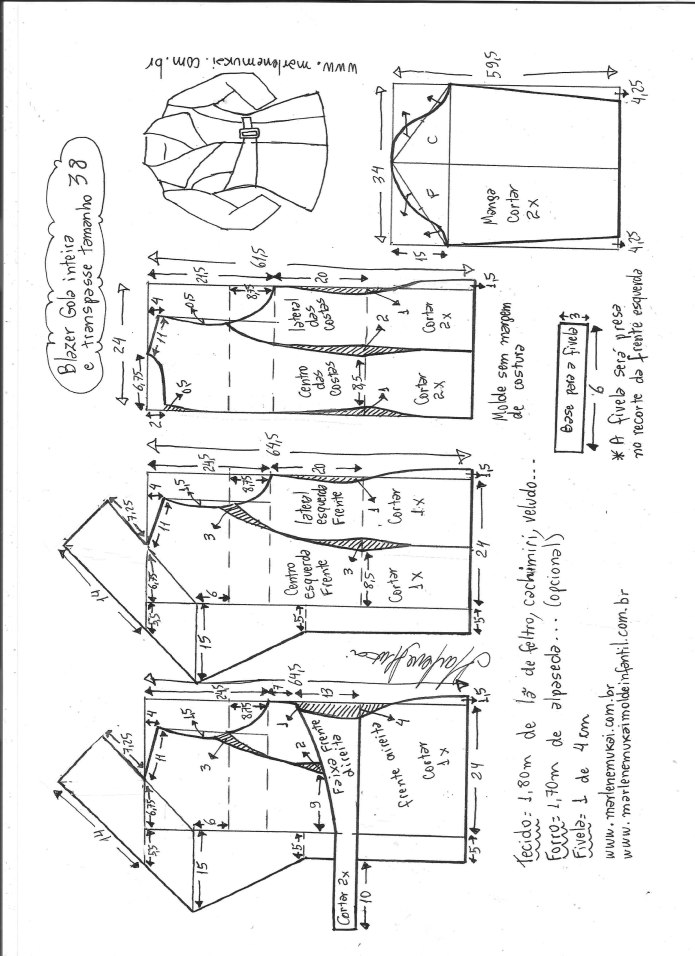 Blazer Gola inteira
e transpasse tamanho 38
www.marlenemukai.com.br
59,5
34
15
4,25
4,25
C
F
Manga
Cortar
2x
24
61,5
21,5
20
1,5
6,75
4
11
0,5
8,75
2
0,5
8,5
1
2
1
lateral
das
costas
Cortar
2x
Centro
das
costas
Cortar
2x
Molde sem margem
de costura
Base para a fivela
3
6
* A fivela será presa
no recorte da frente esquerda
64,5
24,5
20
1,5
14
7,25
4
11
1,5
8,75
3
5,5
6,75
6
15
5
8,5
3
1
24
5
lateral
esquerda
Frente
Cortar
1x
Centro
esquerda
Frente
Cortar
1x
64,5
24,5
7
13
1,5
14
7,25
4
11
1,5
8,75
3
5,5
6,75
6
15
5
9
2
1
4
24
5
10
Faixa Frente
direita
Cortar 2x
frente direita
Cortar
1x
Tecido= 1,80m de lã de feltro, cachimiri, veludo...
Forro= 1,70m de alpaseda... (opcional)
Fivela= 1 de 4cm
www.marlenemukai.com.br
www.marlenemukaimoldeinfantil.com.br